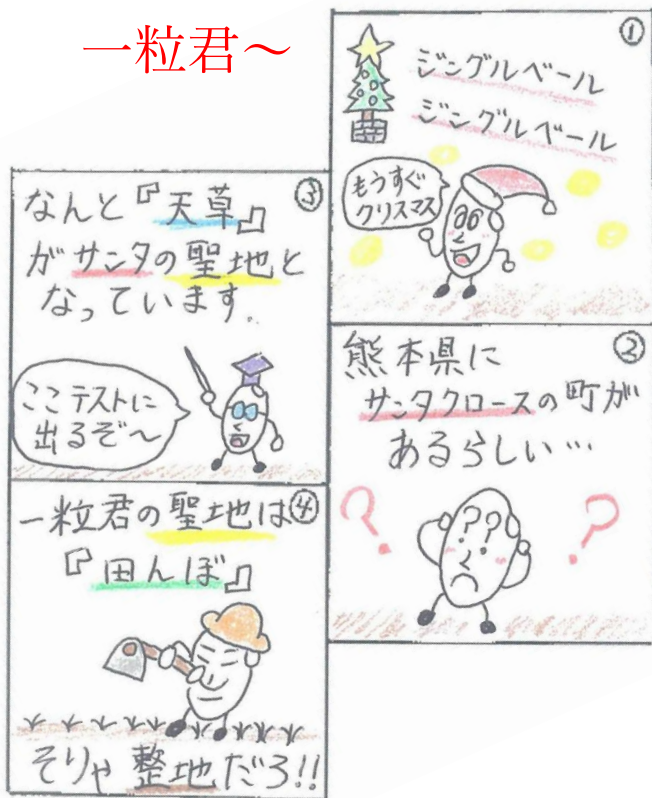 一粒君～
①
ジングルベール
ジングルベール
もうすぐ
クリスマス
②
熊本県に
サンタクロースの町が
あるらしい…
？
？？
？
③
なんと『天草』
がサンタの聖地と
なっています.
ここテストに
出るぞ～
④
一粒君の聖地は
『田んぼ』
そりゃ整地だろ!!